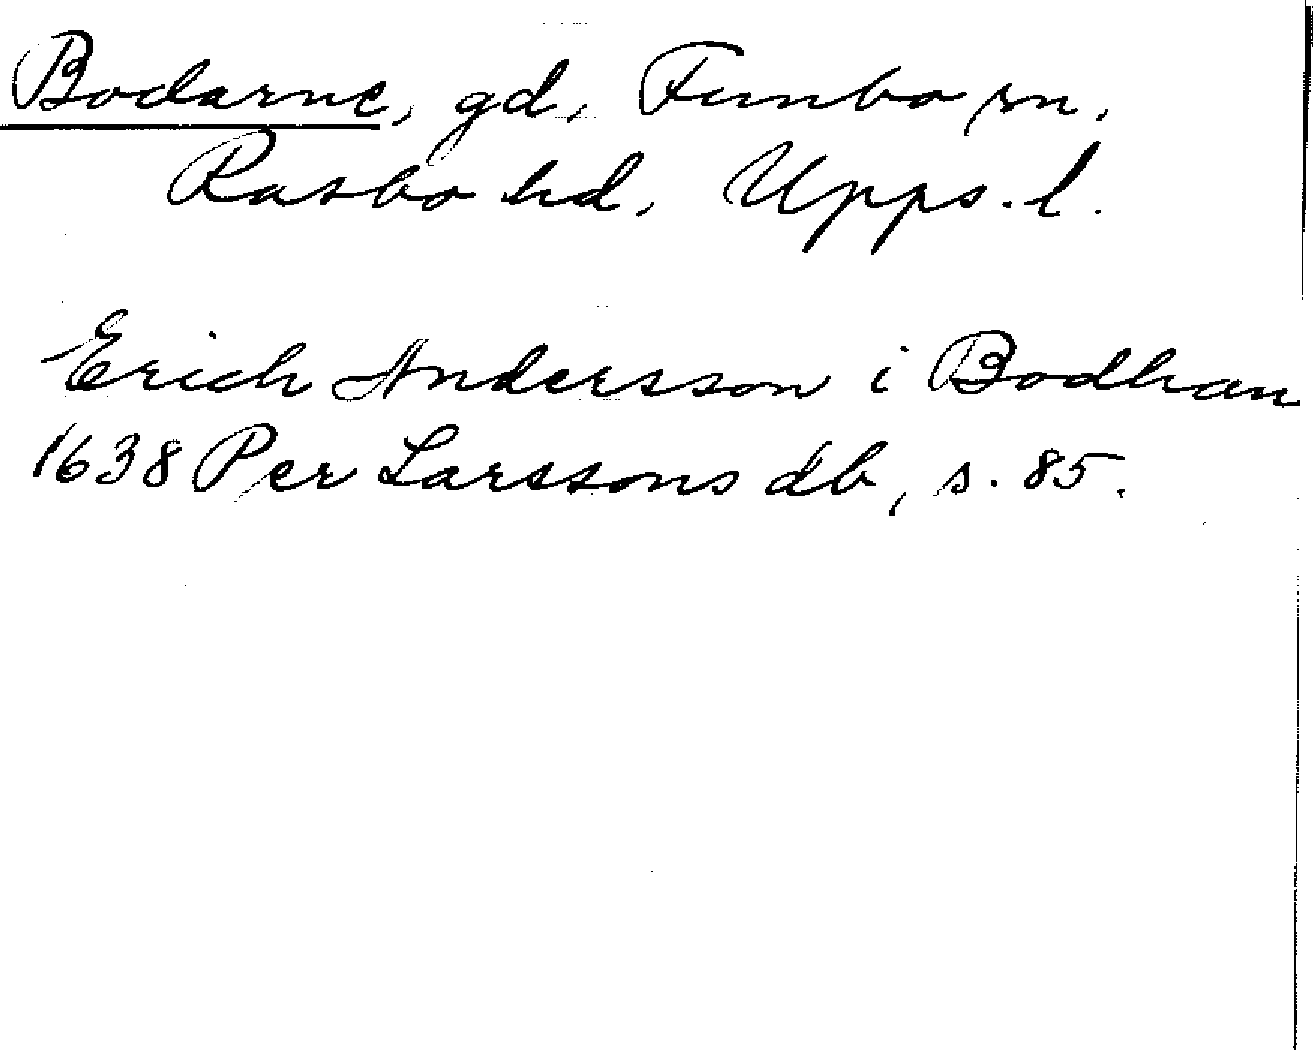 Bodarne, gd, Funbo sn,
Rasbo hd, Upps. l.
Erich Andersson i Bodhan
1638 Per Larssons db, s. 85.